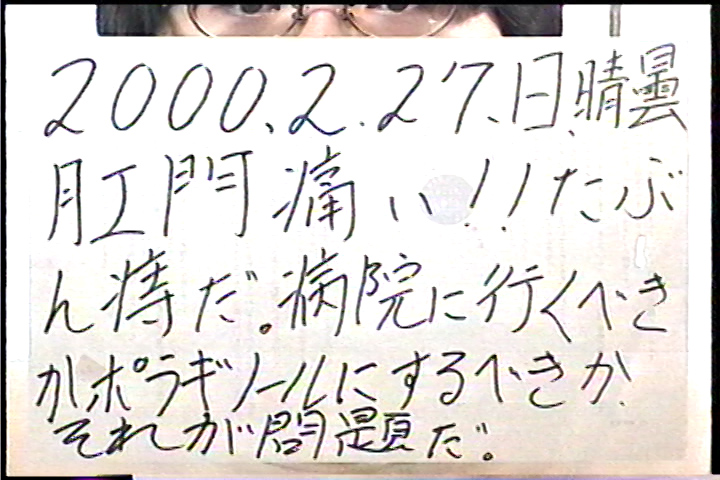 2000.2.27.日.晴曇
肛門痛い!!たぶ
ん痔だ。病院に行くべき
かポラギノールにするべきか
それが問題だ。